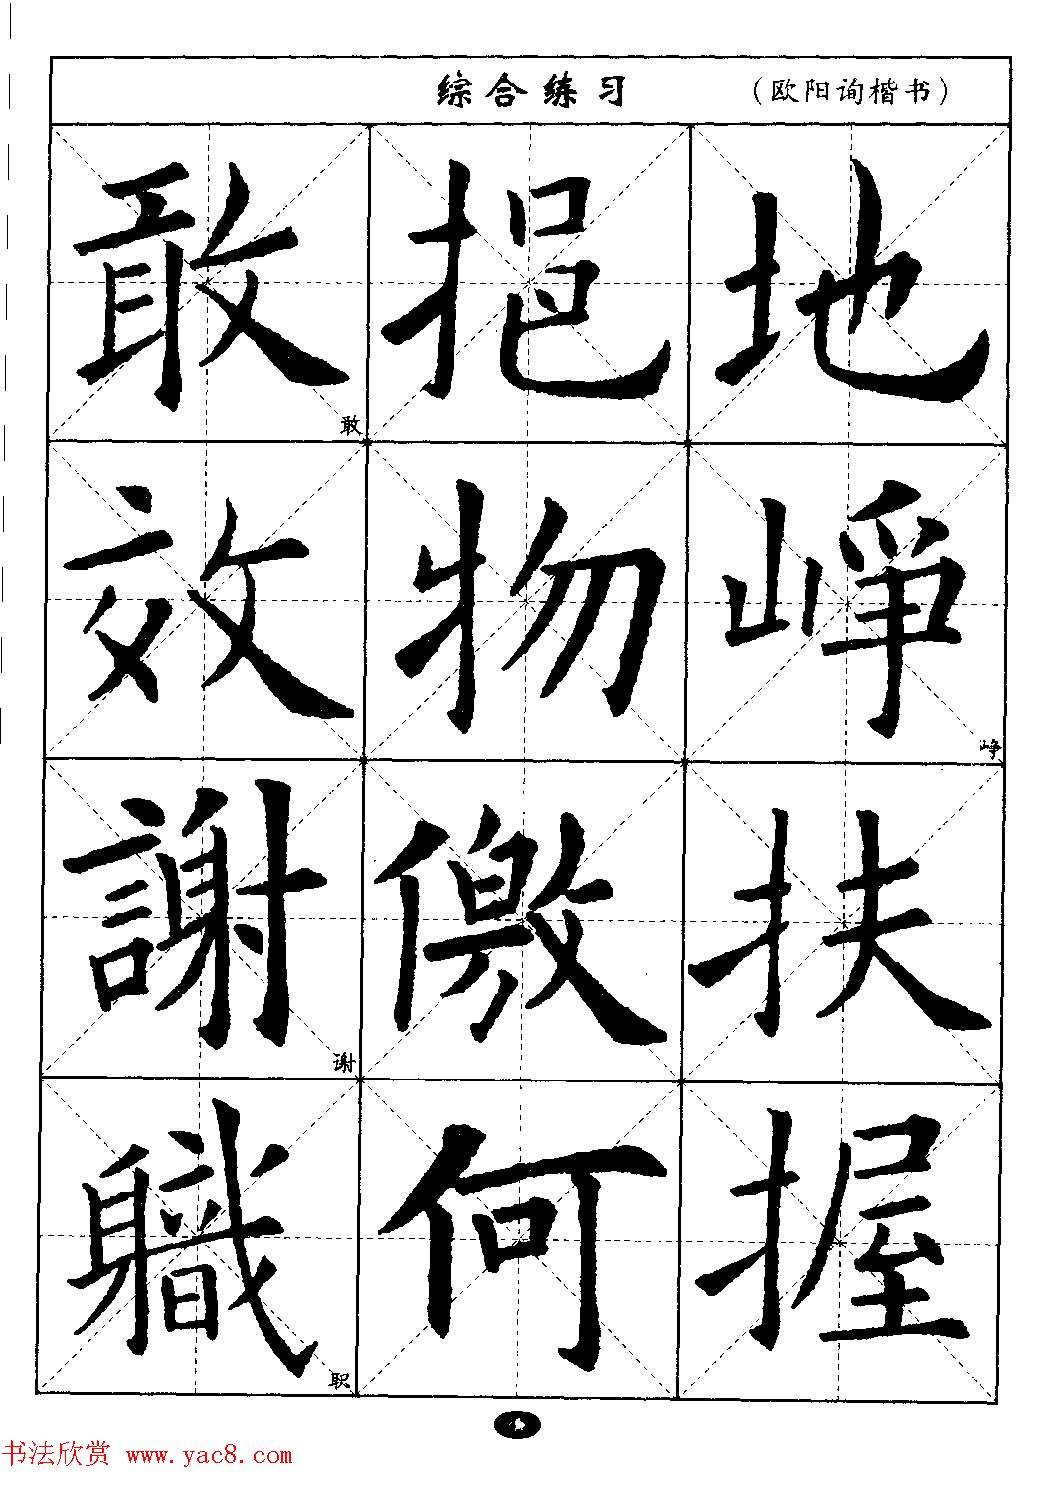 综合练习 （欧阳询楷书）
敢 挹 地
敢
效 物 崢
峥
謝 儌 扶
谢
軄 何 握
职
书法欣赏 www.yac8.com